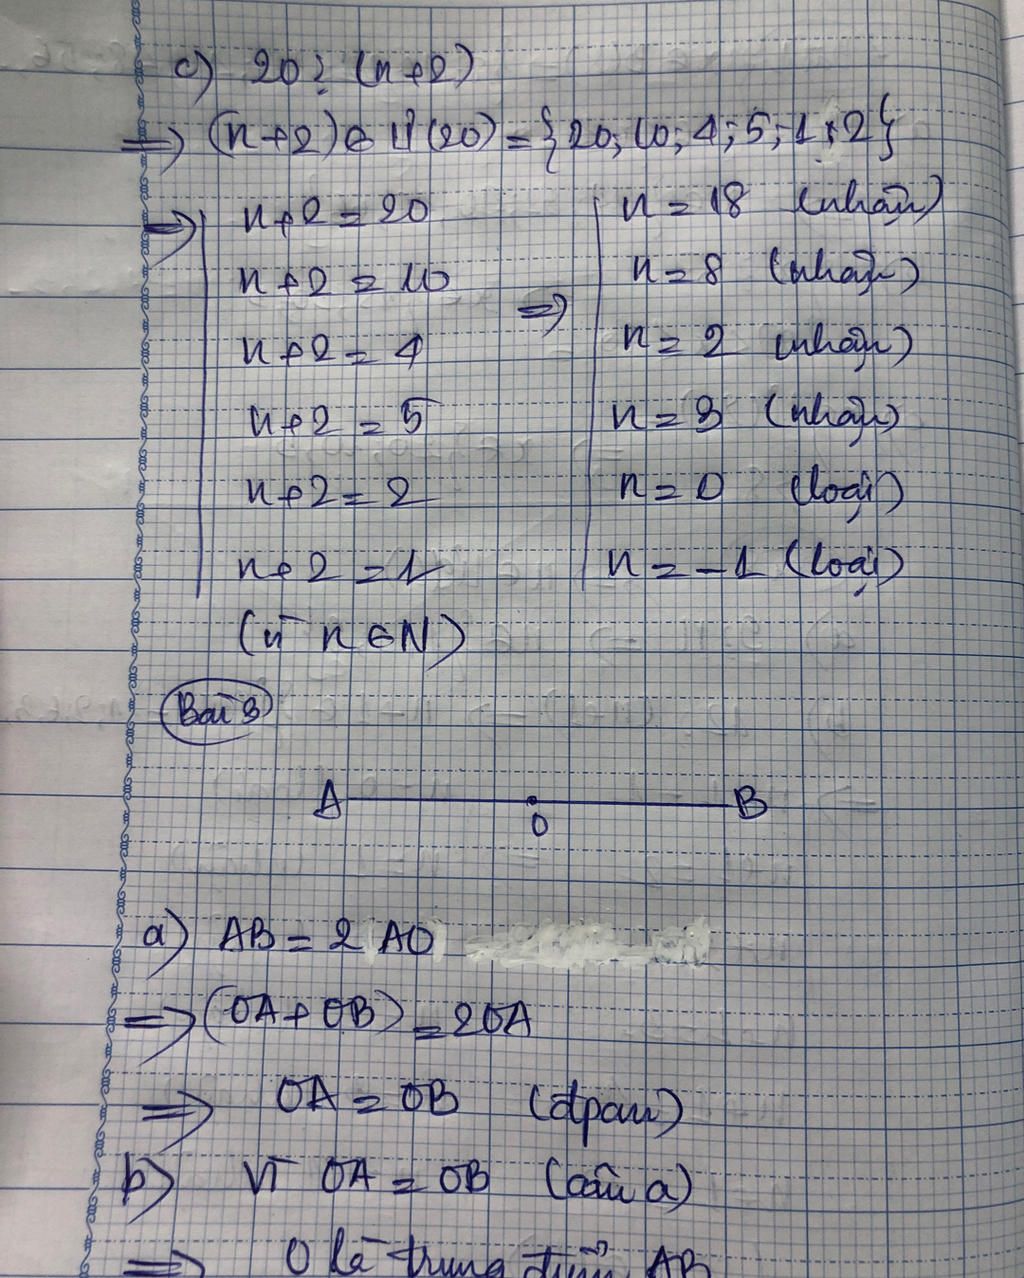 c) 20 ⋮ (n+2)
=> (n+2) ∈ Ư(20) = {20; 10; 4; 5; 1; 2}
=> n+2 = 20 n = 18 (nhận)
n+2 = 10 => n = 8 (nhận)
n+2 = 4 n = 2 (nhận)
n+2 = 5 n = 3 (nhận)
n+2 = 2 n = 0 (loại)
n+2 = 1 n = -1 (loại)
(vì n ∈ N)
Bài 3
A B
O
a) AB = 2 AO
=> (OA + OB) = 2OA
=> OA = OB (đpcm)
b) Vì OA = OB (câu a)
=> O là trung điểm AB